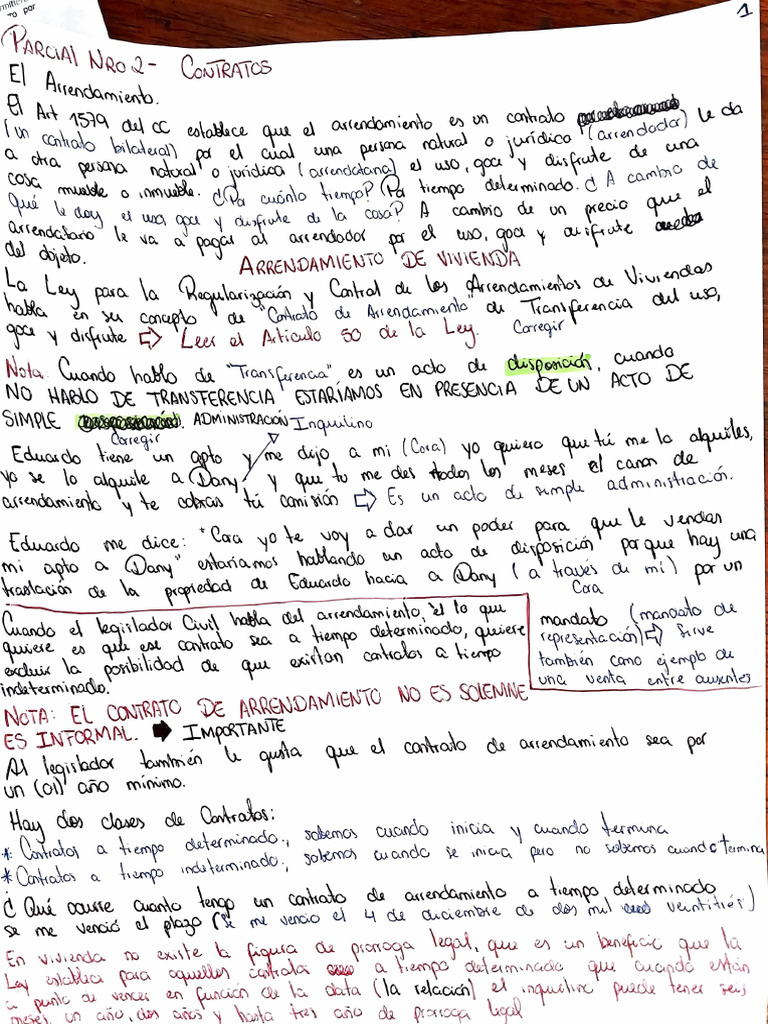 1
PARCIAL NRO 2- CONTRATOS
El Arrendamiento.
El Art 1579 del CC establece que el arrendamiento es un contrato
(un contrato bilateral) por el cual una persona natural o jurídica (arrendador) le da
a otra persona natural o jurídica (arrendataria) el uso, goce y disfrute de una
cosa mueble o inmueble. ¿Por cuánto tiempo? (Por tiempo determinado. ¿A cambio de
qué le doy el uso, goce y disfrute de la cosa? A cambio de un precio que el
arrendatario le va a pagar al arrendador por el uso, goce y disfrute
del objeto.
ARRENDAMIENTO DE VIVIENDA
La Ley para la Regularización y Control de los Arrendamientos de Viviendas
habla en su concepto de "Contrato de Arrendamiento" de Transferencia del uso,
goce y disfrute ⇨ Leer el Artículo 50 de la Ley. Corregir
Nota: Cuando hablo de "Transferencia" es un acto de disposición, cuando
NO HABLO DE TRANSFERENCIA ESTARÍAMOS EN PRESENCIA DE UN ACTO DE
SIMPLE ADMINISTRACIÓN Inquilino
Corregir
Eduardo tiene un apto y me dijo a mi (Cora) yo quiero que tú me la alquiles,
yo se lo alquile a Dany y que tu me des todos los meses el canon de
arrendamiento y te cobras tú comisión ⇨ Es un acto de simple administración.
Eduardo me dice: "Cora yo te voy a dar un poder para que le vendas
mi apto a Dany" estaríamos hablando un acto de disposición porque hay una
traslación de la propiedad de Eduardo hacia a Dany (a través de mí) por un
Cora
mandato (mandato de
representación) ⇨ Sirve
también como ejemplo de
una venta entre ausentes
Cuando el legislador Civil habla del arrendamiento, el lo que
quiere es que ese contrato sea a tiempo determinado, quiere
excluir la posibilidad de que existan contratos a tiempo
indeterminado.
NOTA: EL CONTRATO DE ARRENDAMIENTO NO ES SOLEMNE
ES INFORMAL. ➡ IMPORTANTE
Al legislador también le gusta que el contrato de arrendamiento sea por
un (01) año mínimo.
Hay dos clases de Contratos:
* Contratos a tiempo determinado:, sabemos cuando inicia y cuando termina
* Contratos a tiempo indeterminado:, sabemos cuando se inicia pero no sabemos cuando termina
¿Qué ocurre cuanto tengo un contrato de arrendamiento a tiempo determinado
se me venció el plazo (se me vencio el 4 de diciembre de dos mil veintitrés)
En vivienda no existe la figura de prorroga legal, que es un beneficio que la
Ley establecía para aquellos contratos a tiempo determinado que cuando están
a punto de vencer en función de la data (la relación) el inquilino puede tener seis
meses, un año, dos años y hasta tres año de prorroga legal